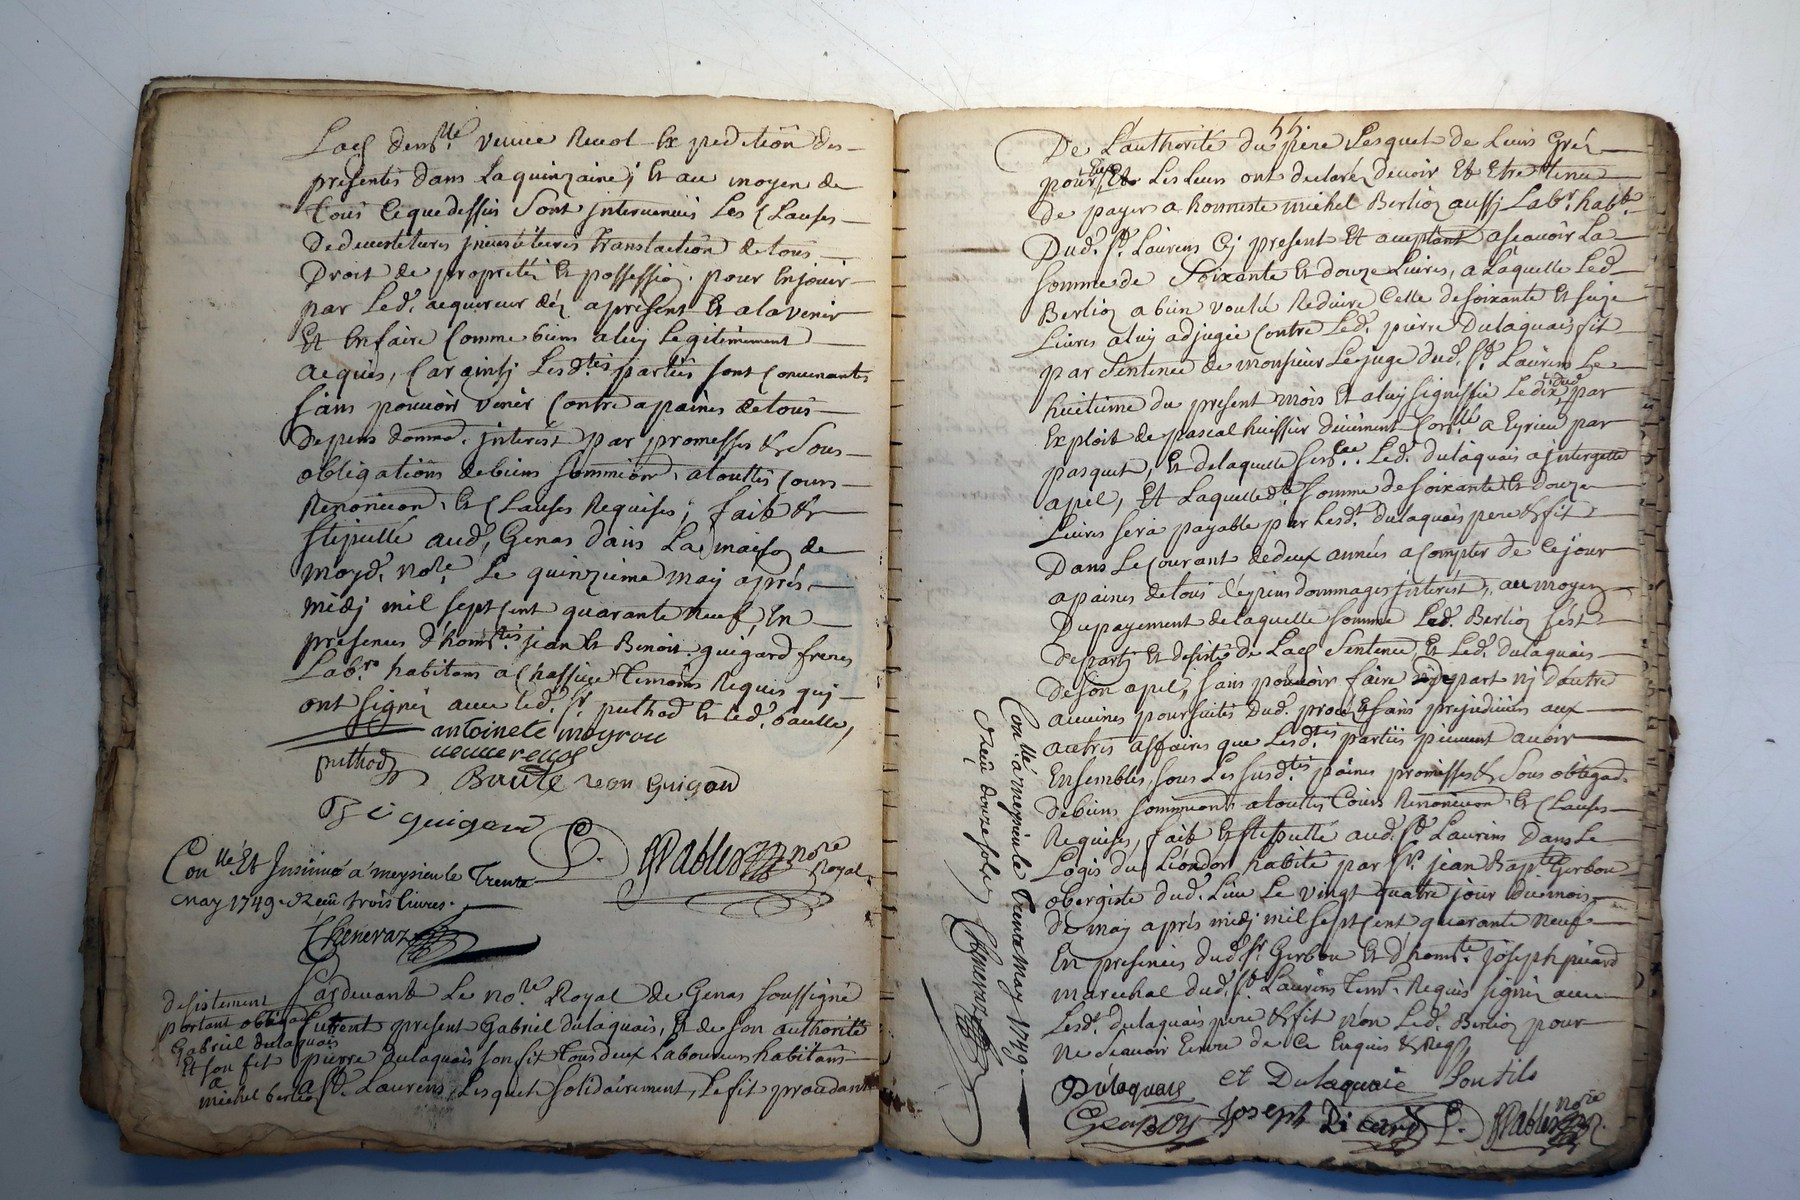 Lad. demlle. veuve Revol Expedition des
presentes dans la quinzaine; Et au moyen de
Tous Cequedessus Sont jntervenues Les Clauses
Dedevestitures jnvestitures translation detous
Droit de proprieté Et possession. pour Enjouir
par Led. acquereur dés apresent Et alavenir
Et Enfaire Comme biens aluy Legitimement
acquis, Car ainsy Lesdtes parties sont Convenantes
sans pouvoir venir Contre apaines detous
Depens domma. jnterest par promesses & Sous
obligations debiens Sommion. atouttes Cours
Renoncion. Et Clauses Requises; fait &
stipullé aud. Genas dans La maison de
moyd. nore. Le quinzieme may aprés
midy mil sept Cent quarante neuf, En
presences d'homtes jean Et Benoit guigard freres
Labrs. habitans a Chassieu temoins Requis quy
ont signéz avec led. sr. puthod Et led. baulle,
antoinete meyrou
veuve revol
puthod
Baule jean Guigard
B guigard
C. Pables nore Royal
Conllé. Et Jnsinué a meysieu le Trente
may 1749. Receu trois livres.
Cheneraz
desistement
portant obligaon
Gabriel dulaquais
Et son fit
a
michel berlioz
Pardevant Le nore. Royal de Genas soussigné
furent present Gabriel dulaquais, Et de son authorité
pierre dulaquais son fit tous deux Laboureurs habitans
a St. Laurens, Lesquels solidairement, le fit procedant
55
De L'authorité du pere Lesquels de Leurs Gréz
pour Eux Et Les Leurs ont declaréz devoir Et Etre tenus
de payer a honneste michel Berlioz aussy Labr. habt.
Dud. St. Laurens Cy present Et aceptant ascavoir La
somme de Soixante Et douze Livres, a Laquelle Led.
Berlioz a bien voulu Reduire Celle desoixante Et seize
Livres aluy adjugée Contre Led. pierre Dulaquais fit
par Sentence de monsieur Lejuge dud. St. Laurens Le
huitieme du present mois Et aluy signiffié Ledix dud. par
Exploit de pascal huissier
pasquet, Et delaquelle sence. Led. dulaquais a jntergetté
apel, Et Laquelle de. somme desoixante Et douze
Livres sera payable par Lesd. dulaquais pere & fit
Dans Le Courant dedeux années a Compter de Cejour
apaines detous depens dommages jnterest, au moyen
Dupayement delaquelle somme Led. Berlioz s'est
departy Et desisté de Lad. Sentence, Et Led. dulaquais
deson apel, sans pouvoir faire depart ny d'autre
aucunes poursuites Dud. proces Et sans prejudicier aux
autres affaires que Lesdtes parties peuvent avoir
Ensembles, sous Les susdtes paines promesses & sous obligaon.
debiens sommion. atouttes Cours Renoncion. Et Clauses
Requises, fait Et stipullé aud. St. Laurens Dans Le
Logis du Liondor habité par sr. jean Bapte. Gerbou
obergiste dud. Lieu Le vingt quatre jour dumois
de may aprés midy mil sept Cent quarante neuf
En presences dud. sr. Gerbou Et d'homte. joseph picard
marechal dud. St. Laurens temt. Requis signéz avec
Lesd. dulaquais pere & fit non Led. Berlioz pour
ne scavoir Ecrire de Ce Enquis & Req.
Dulaquais et Dulaquais
Gerbou Joseph Picard C. Pables nore
Conllé. a meysieu le Trente may 1749.
Receu douze sols Cheneraz